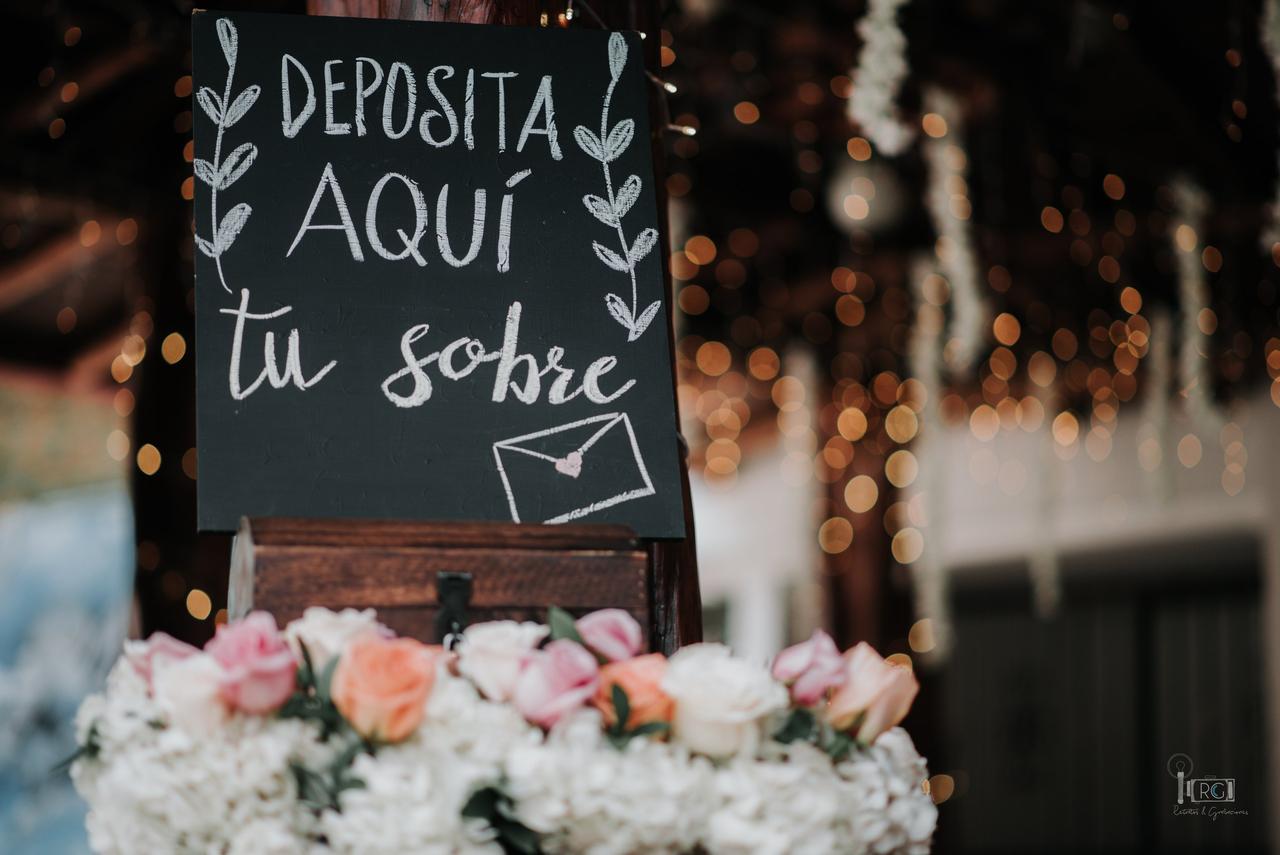 DEPOSITA
AQUÍ
tu sobre
RG
Retratos & Grabaciones